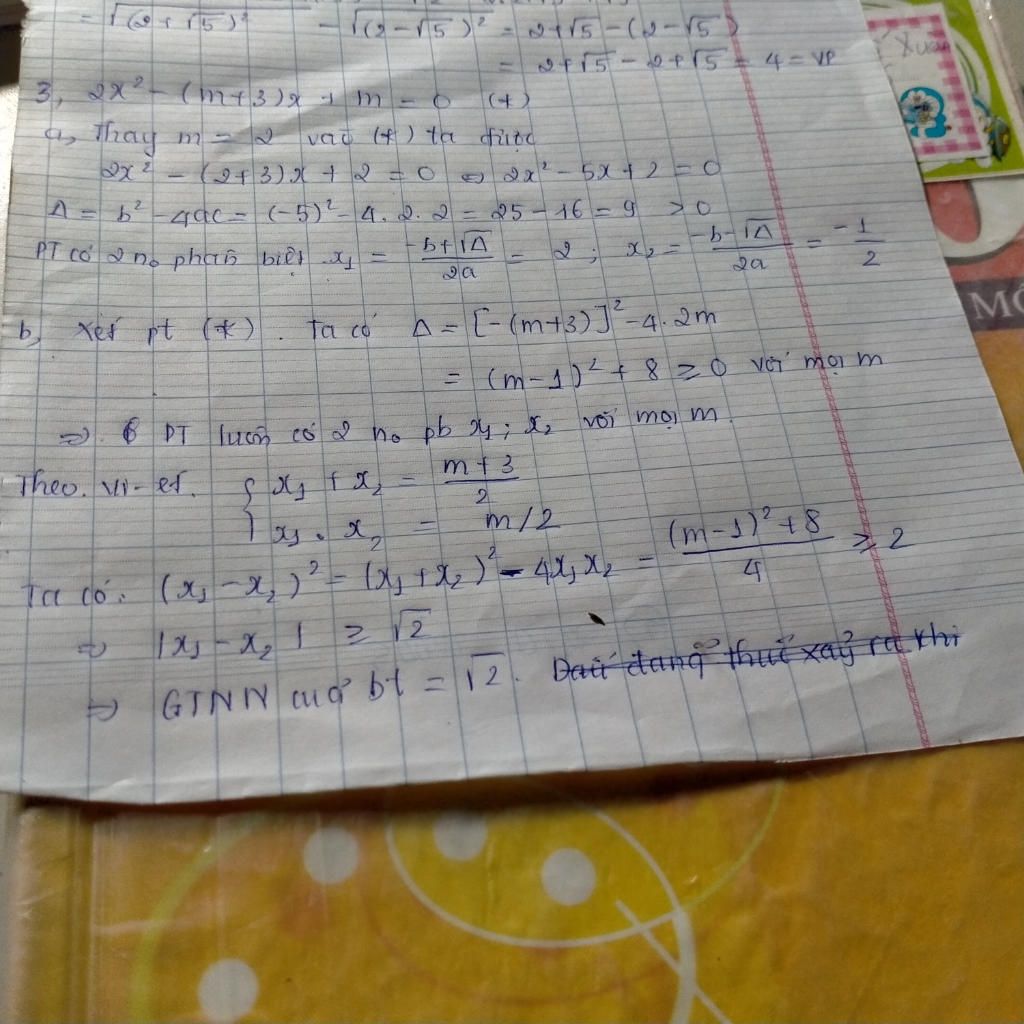 = √(2+√5)² - √(2-√5)² = 2+√5-(2-√5)
= 2+√5-2+√5 = 4 = VP
3, 2x² - (m+3)x + m = 0 (*)
a, Thay m = 2 vào (*) ta được
2x² - (2+3)x + 2 = 0 ⇔ 2x² - 5x + 2 = 0
Δ = b² - 4ac = (-5)² - 4.2.2 = 25 - 16 = 9 > 0
PT có 2 no phân biệt x₁ = (-b+√Δ)/2a = 2 ; x₂ = (-b-√Δ)/2a = -1/2
b, Xét pt (*). Ta có Δ = [-(m+3)]² - 4.2m
= (m-1)² + 8 ≥ 0 với mọi m
⇒ PT luôn có 2 no pb x₁; x₂ với mọi m.
Theo. Vi-et. { x₁ + x₂ = (m+3)/2
x₁ . x₂ = m/2
Ta có: (x₁ - x₂)² = (x₁ + x₂)² - 4x₁x₂ = ((m-1)² + 8)/4 ≥ 2
⇒ |x₁ - x₂| ≥ √2
⇒ GTNN của bt = √2. Dấu đẳng thức xảy ra khi
Xuân
MÔ